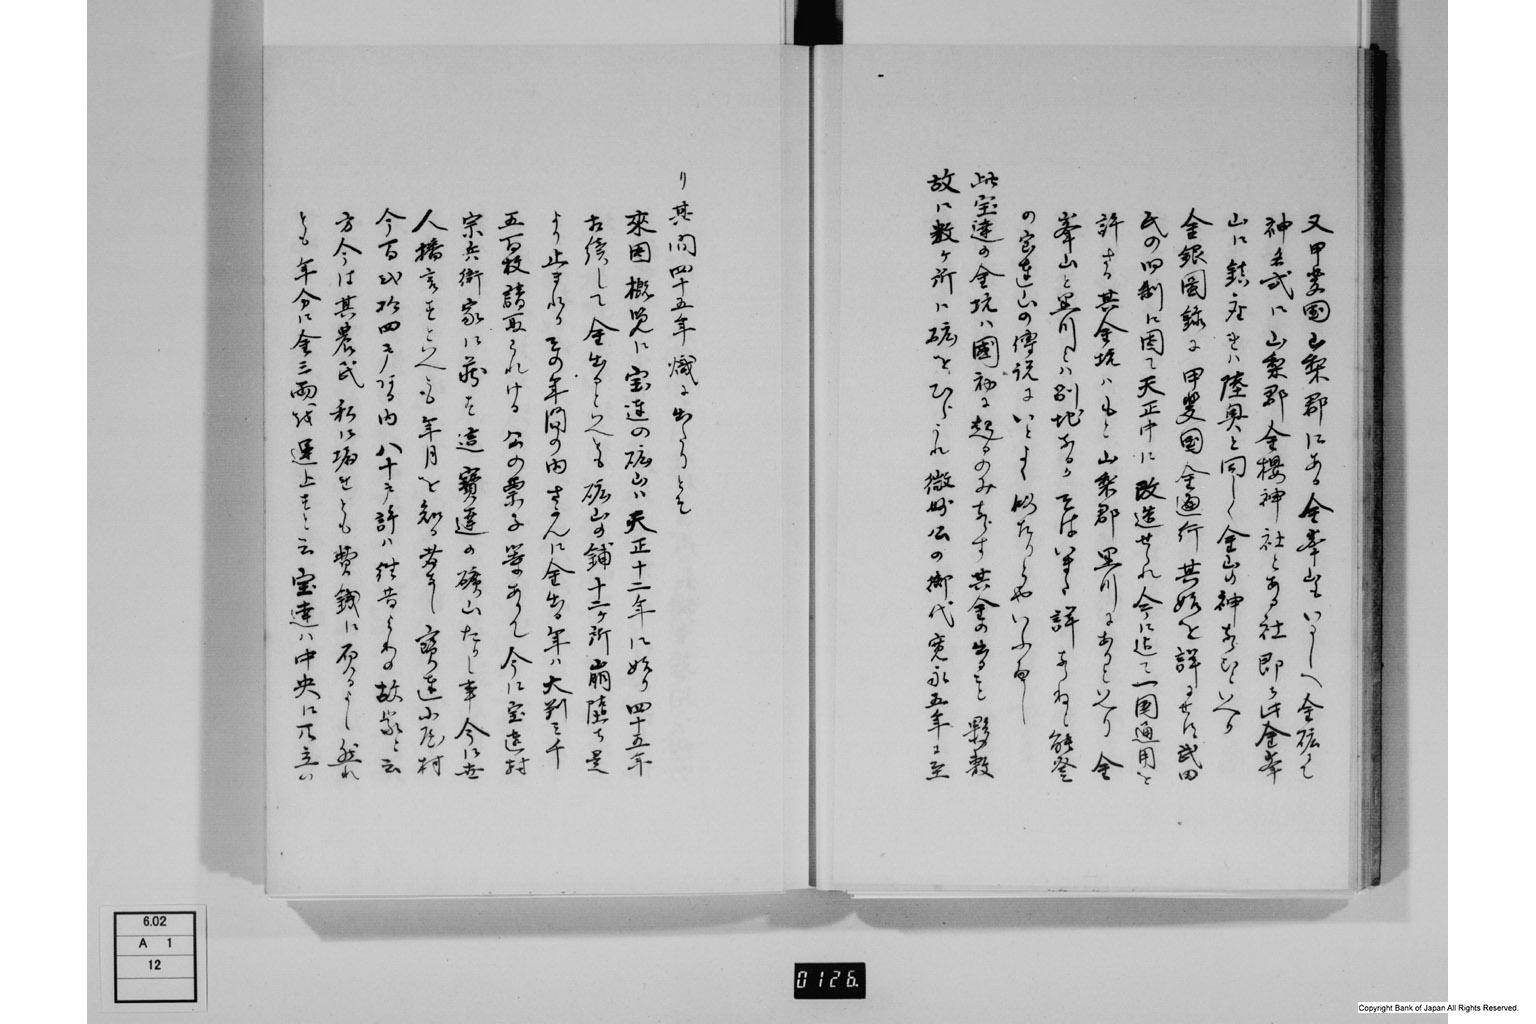 又甲斐國山梨郡にある金峯山もいにしへ金砿にて
神名式に山梨郡金櫻神社とある社即ち此金峯
山に鎮座せは陸奥と同しく金山の神なむといへり
金銀圖録に甲斐国金通行其始を詳にせす武田
氏の旧制に因て天正中に改造せられ今に迄て一国通用を
許さる其金坑はもと山梨郡黒川にありといへり金
峯山と黒川とは別地なるか そはいまた詳ならねと能登
の宝達山の傳説に いとよく似たりとやいふへし
此宝達の金坑ハ國初に起るのみならす其金の出ること夥敷
故に数ヶ所に砿をひらかれ微妙公の御代寛永五年に至
り其間四十五年熾に出たりとそ
來因概覧に宝達の砿山ハ天正十二年に始り四十五年
相続して金出るといへとも砿山の鋪十二ヶ所崩堕ち是
より止まれり その年間の内さかんに金出る年ハ大判三千
五百枚請取られける公の票子等ありて今に宝達村
宗兵衛家に蔵す 這寳達の礦山たりし事今は世
人播言すといへとも年月を知る者なし 寳達小屋村
今百弐拾四 内八十 許ハ往昔 故家と云
方今は其農民 私に堀せとも費銭に 然れ
とも年分に金三両 運上すと云 宝達ハ中央に
6.02
A 1
12
0126.
Copyright Bank of Japan All Rights Reserved.